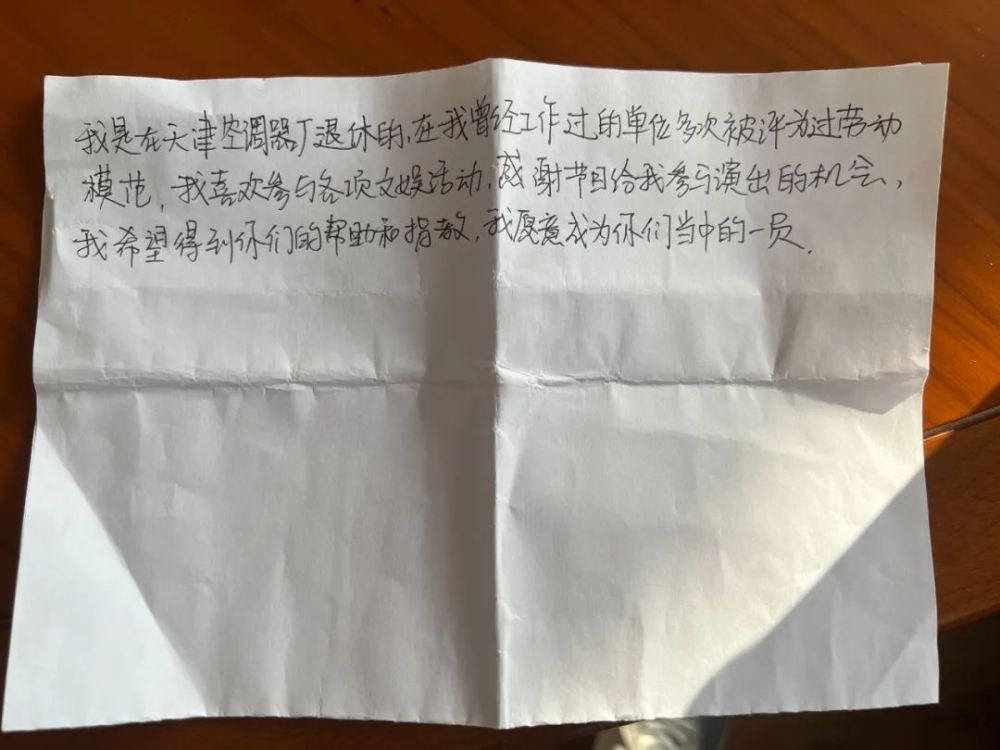 我是在天津空调器厂退休的,在我曾经工作过的单位多次被评为过劳动
模范,我喜欢参与各项文娱活动,感谢节目给我参与演出的机会,
我希望得到你们的帮助和指教,我愿意成为你们当中的一员.